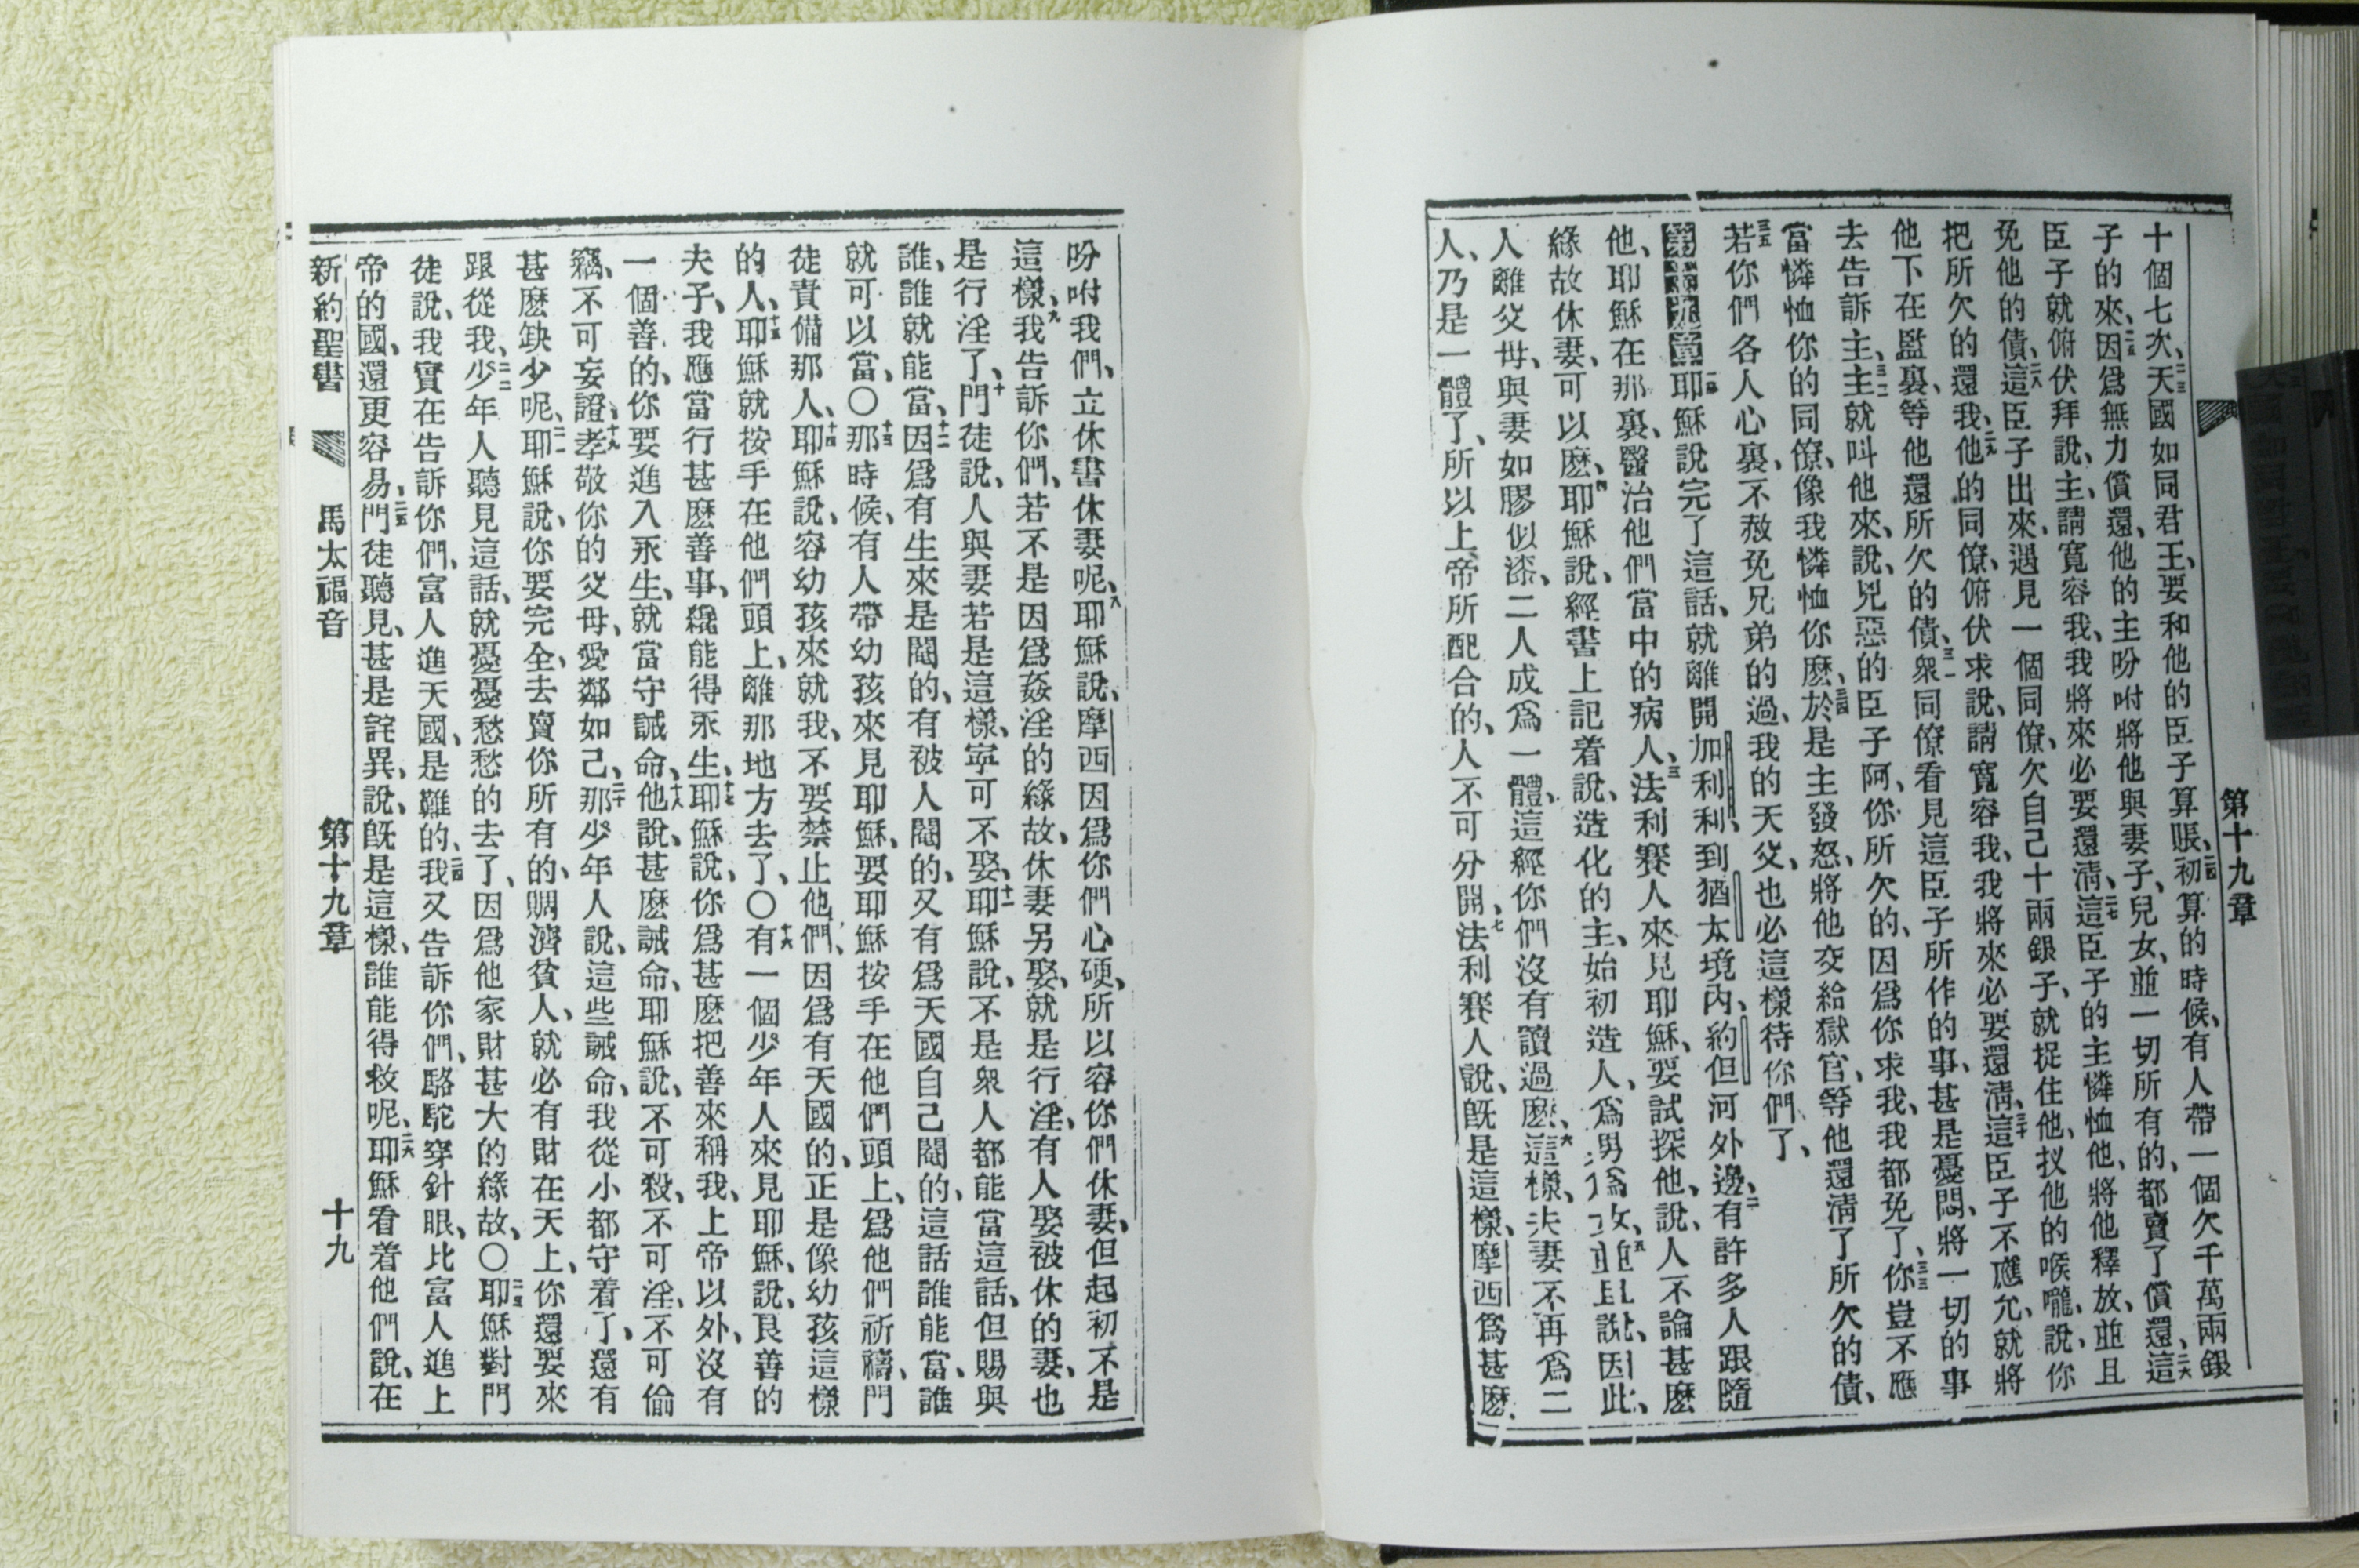 第十九章
十個七次、二三天國如同君王、要和他的臣子算賬、二四初算的時候、有人帶一個欠千萬兩銀
子的來、二五因爲無力償還、他的主吩咐將他與妻子、兒女、並一切所有的、都賣了償還、二六這
臣子就俯伏拜說、主、請寬容我、我將來必要還淸、二七這臣子的主憐恤他、將他釋放、並且
免他的債、二八這臣子出來、遇見一個同僚、欠自己十兩銀子、就捉住他、扠他的喉嚨、說、你
把所欠的還我、二九他的同僚、俯伏求說、請寬容我、我將來必要還淸、三十這臣子不應允、就將
他下在監裏、等他還所欠的債、三一衆同僚看見這臣子所作的事、甚是憂悶、將一切的事
去告訴主、三二主就叫他來、說、兇惡的臣子阿、你所欠的、因爲你求我、我都免了、三三你豈不應
當憐恤你的同僚、像我憐恤你麽、三四於是主發怒、將他交給獄官、等他還淸了所欠的債、
三五若你們各人心裏、不赦免兄弟的過、我的天父、也必這樣待你們了、
第十九章一耶穌說完了這話、就離開加利利、到猶太境內、約但河外邊、二有許多人跟隨
他、耶穌在那裏、醫治他們當中的病人、三法利賽人來見耶穌、要試探他、說、人不論甚麽
緣故休妻、可以麽、四耶穌說、經書上記着說、造化的主、始初造人、爲男爲女、五並且說、因此、
人離父母、與妻如膠似漆、二人成爲一體、這經你們沒有讀過麽、六這樣、夫妻不再爲二
人、乃是一體了、所以上帝所配合的、人不可分開、七法利賽人說、旣是這樣、摩西爲甚麽
吩咐我們、立休書休妻呢、八耶穌說、摩西因爲你們心硬、所以容你們休妻、但起初不是
這樣、九我告訴你們、若不是因爲姦淫的緣故、休妻另娶、就是行淫、有人娶被休的妻、也
是行淫了、十門徒說、人與妻若是這樣、寧可不娶、十一耶穌說、不是衆人都能當這話、但賜與
誰、誰就能當、十二因爲有生來是閹的、有被人閹的、又有爲天國自己閹的、這話誰能當、誰
就可以當、〇十三那時候、有人帶幼孩來見耶穌、要耶穌按手在他們頭上、爲他們祈禱、門
徒責備那人、十四耶穌說、容幼孩來就我、不要禁止他們、因爲有天國的、正是像幼孩這樣
的人、十五耶穌就按手在他們頭上、離那地方去了、〇十六有一個少年人來見耶穌、說、良善的
夫子、我應當行甚麽善事、纔能得永生、十七耶穌說、你爲甚麽把善來稱我、上帝以外、沒有
一個善的、你要進入永生、就當守誡命、十八他說、甚麽誡命、耶穌說、不可殺、不可淫、不可偷
竊、不可妄證、十九孝敬你的父母、愛鄰如己、二十那少年人說、這些誡命、我從小都守着了、還有
甚麽缺少呢、二一耶穌說、你要完全、去賣你所有的、賙濟貧人、就必有財在天上、你還要來
跟從我、二二少年人聽見這話、就憂憂愁愁的去了、因爲他家財甚大的緣故、〇二三耶穌對門
徒說、我實在告訴你們、富人進天國、是難的、二四我又告訴你們、駱駝穿針眼、比富人進上
帝的國、還更容易、二五門徒聽見、甚是詫異、說、旣是這樣、誰能得救呢、二六耶穌看着他們說、在
新約聖書 馬太福音 第十九章 十九